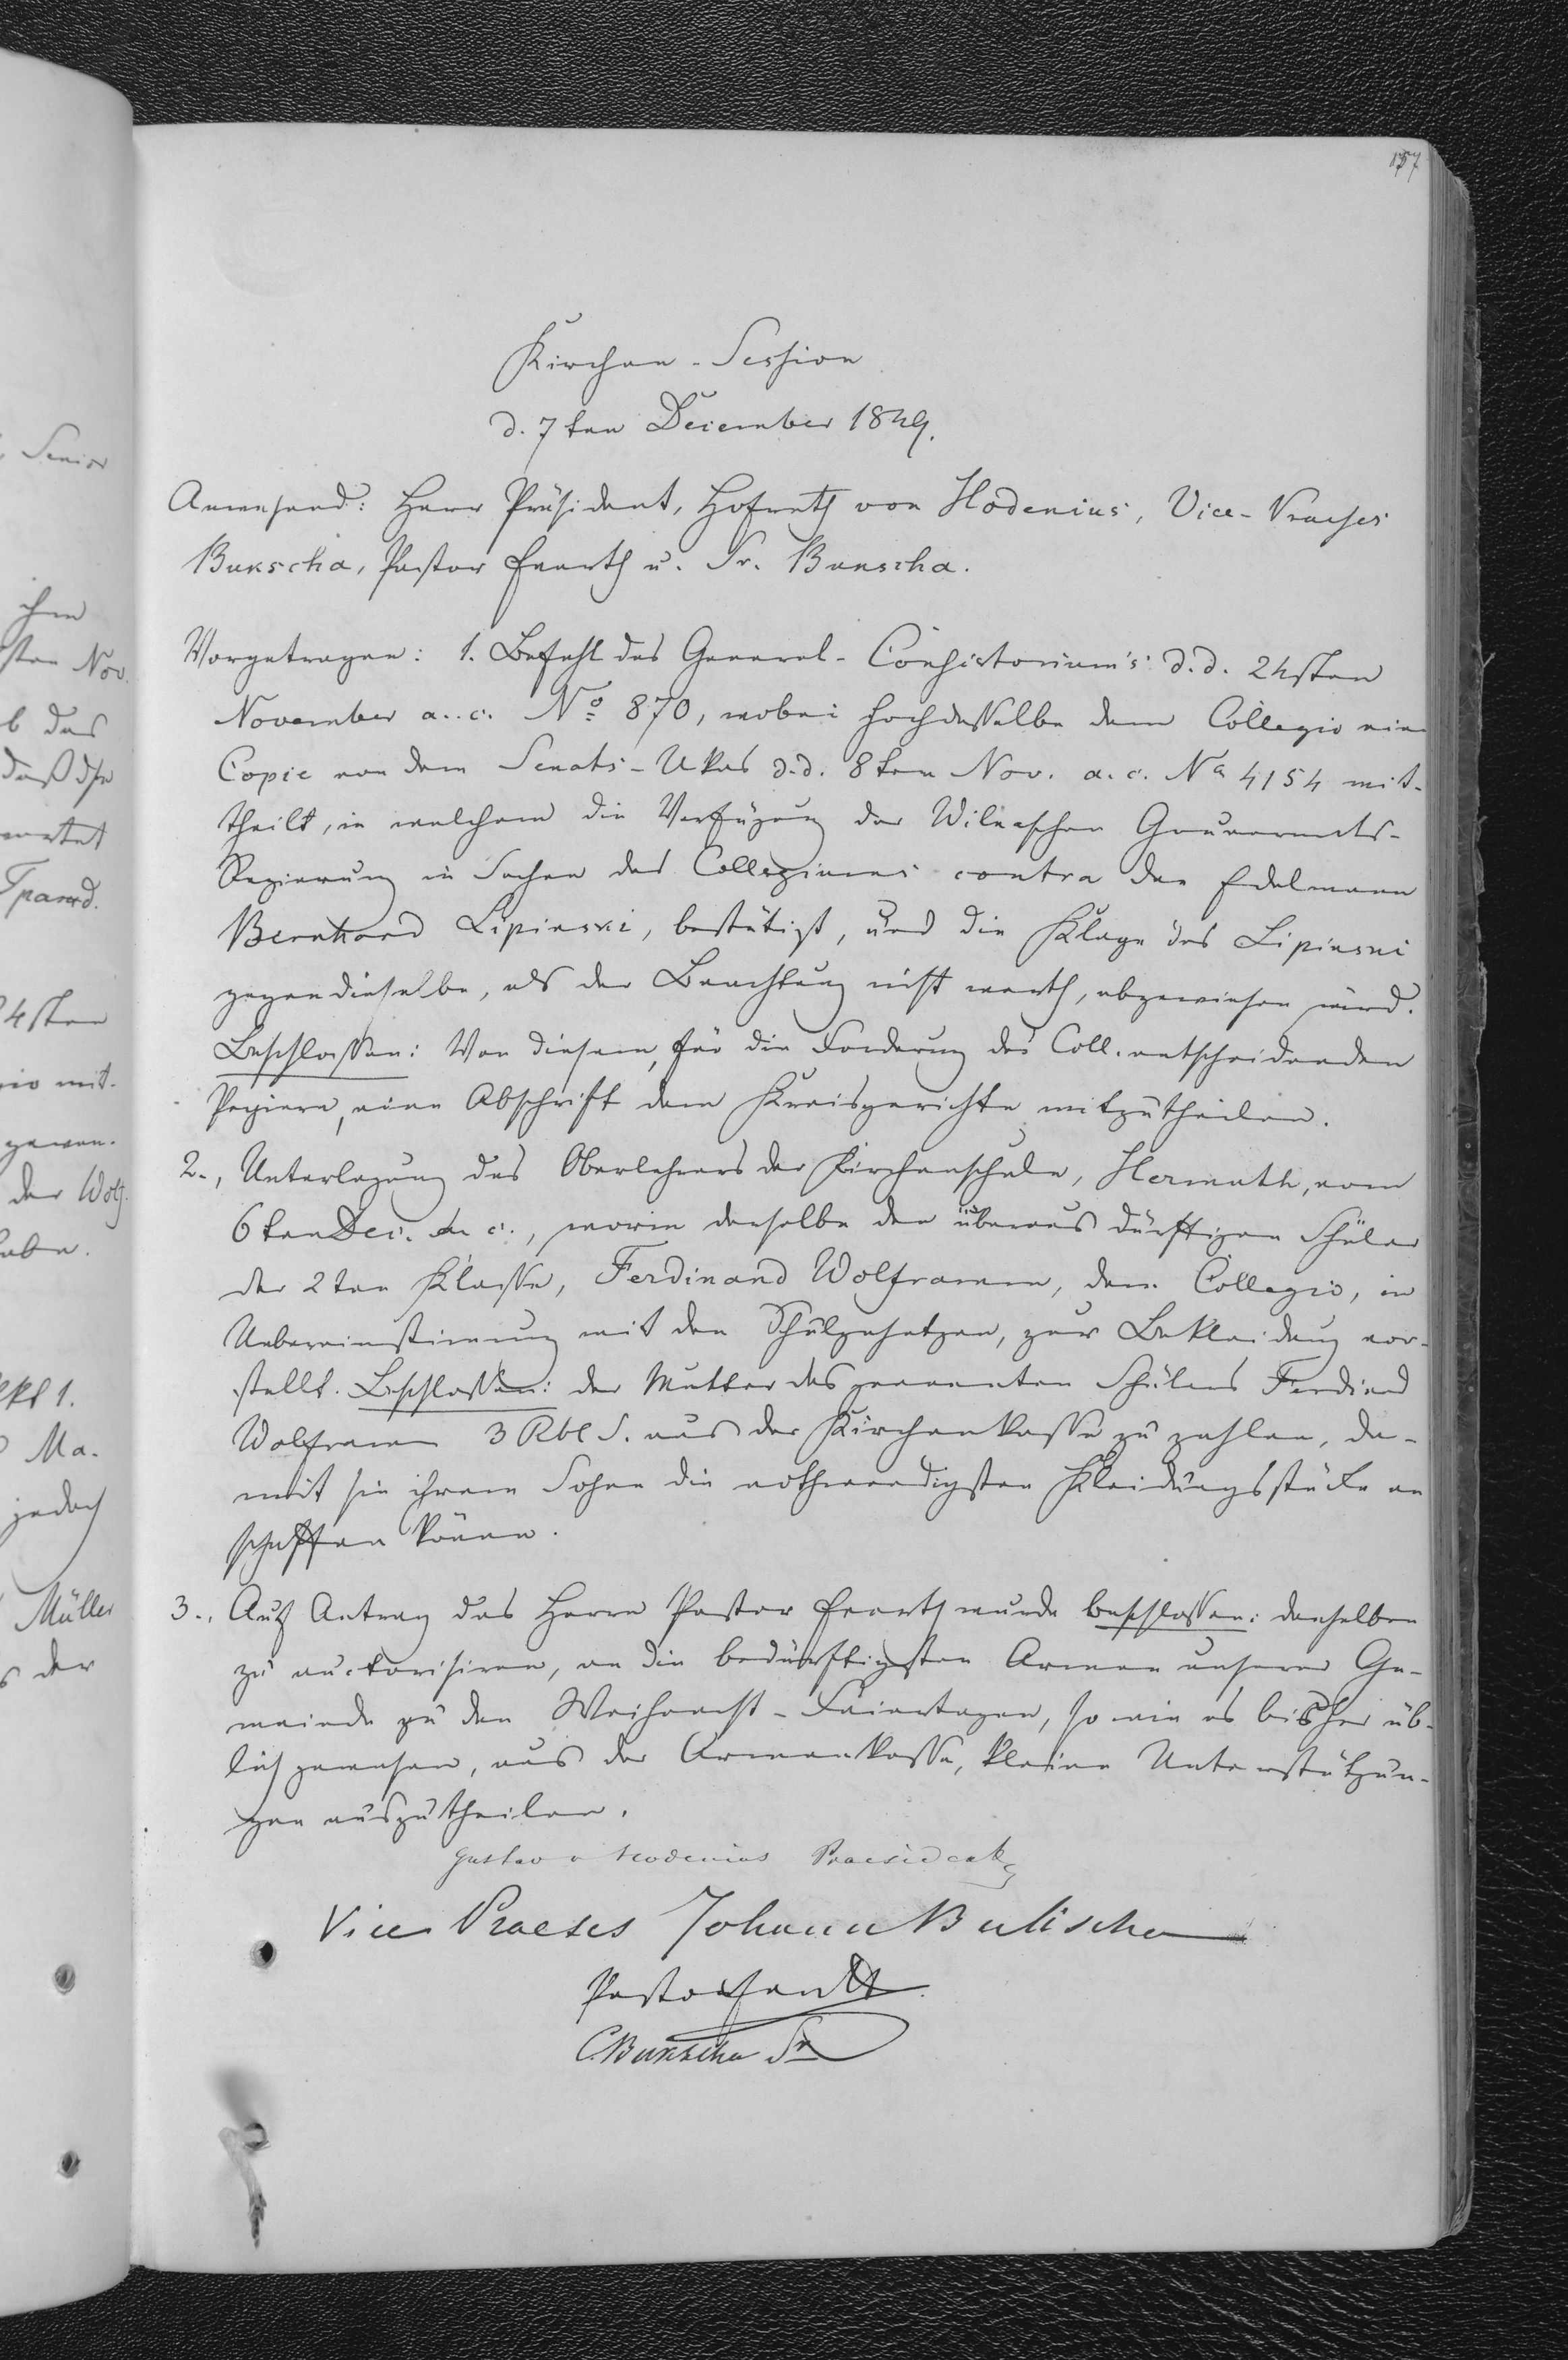 157
Kirchen-Session
d. 7ten December 1849.
Anwesend: Herr Präsident, Hofrath von Hodenius, Vice-Praeses
Bukscha, Pastor Everth u. Sr. Bukscha.
Vorgetragen: 1. Befehl des General-Consistorium's d.d. 24sten
November a. c. No 870, wobei Hochdasselbe dem Collegio eine
Copie von dem Senats-Ukas d.d. 8ten Nov. a. c. No 4154 mit-
theilt, in welchem die Verfügung der Wilnaschen Gouvernemts-
Regierung in Sachen des Collegiums contra den Edelmann
Bernhard Lipinski, bestätigt, und die Klage des Lipinski
gegen dieselbe, als der Beachtung nicht werth, abgewiesen wird.
Beschlossen: Von diesem, für die Forderung des Coll. entscheidenden
Papiere, eine Abschrift dem Kreisgerichte mitzutheilen.
2., Unterlegung des Oberlehrers der Kirchenschule, Hermuth, vom
6ten Dec. a. c., worin derselbe den überaus dürftigen Schüler
der 2ten Klasse, Ferdinand Wolframm, dem Collegio, in
Uebereinstimung mit den Schulgesetzen, zur Bekleidung vor-
stellt. Beschlossen: der Mutter des genannten Schülers Ferdinand
Wolframm 3 Rbl S. aus der Kirchenkasse zu zahlen, da-
mit sie ihrem Sohne die nothwendigsten Kleidungsstücke an
schaffen könne.
3., Auf Antrag des Herrn Pastor Everth wurde beschlossen: denselben
zu auctorisiren, an die bedürftigsten Armen unserer Ge-
meinde zu den Weihnacht-Feiertagen, so wie es bisher üb-
lich gewesen, aus der Armenkasse, kleine Unterstützun-
gen auszutheilen.
Gustav v Hodenius Praesident
Vice Praeses Johann Bukscha
Pastor Everth
C. Bukscha Sr